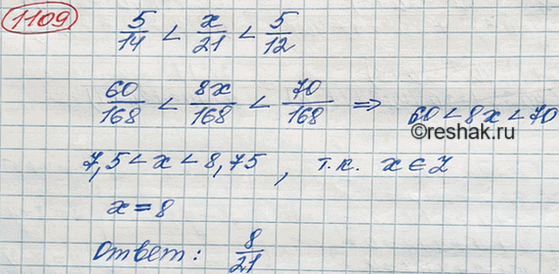 1109
5/14 < x/21 < 5/12
60/168 < 8x/168 < 70/168 ⇒ 60 < 8x < 70
©reshak.ru
7,5 < x < 8,75 , т.к. x ∈ Z
x = 8
Ответ: 8/21